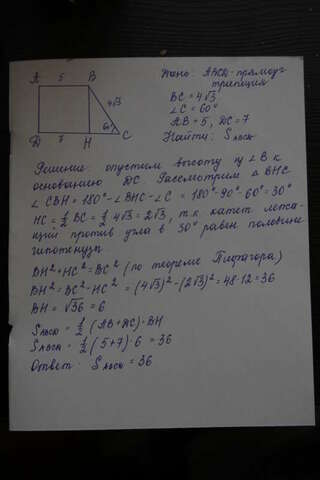 A 5 B
4√3
60°
D 7 H C
Дано: ABCD-прямоуг
трапеция
BC = 4√3
∠C = 60°
AB = 5, DC = 7
Найти: S
Решение: опустим высоту из ∠B к
основанию DC. Рассмотрим △BHC
∠CBH = 180° - ∠BHC - ∠C = 180° - 90° - 60° = 30°
HC = 1/2 BC = 1/2 4√3 = 2√3, т.к катет лежа-
щий против угла в 30° равен половине
гипотенузы
BH² + HC² = BC² (по теореме Пифагора)
BH² = BC² - HC² = (4√3)² - (2√3)² = 48-12 = 36
BH = √36 = 6
S = 1/2 (AB + DC) · BH
S = 1/2 (5+7) · 6 = 36
Ответ: S = 36